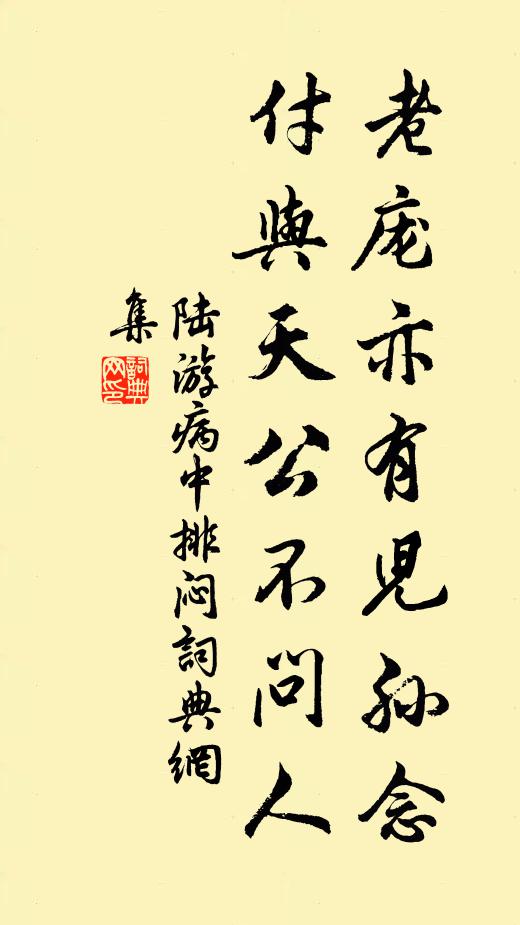 老庞亦有児孙念
付與天公不问人
陆游病中排闷詞典網
集
詞典
网印